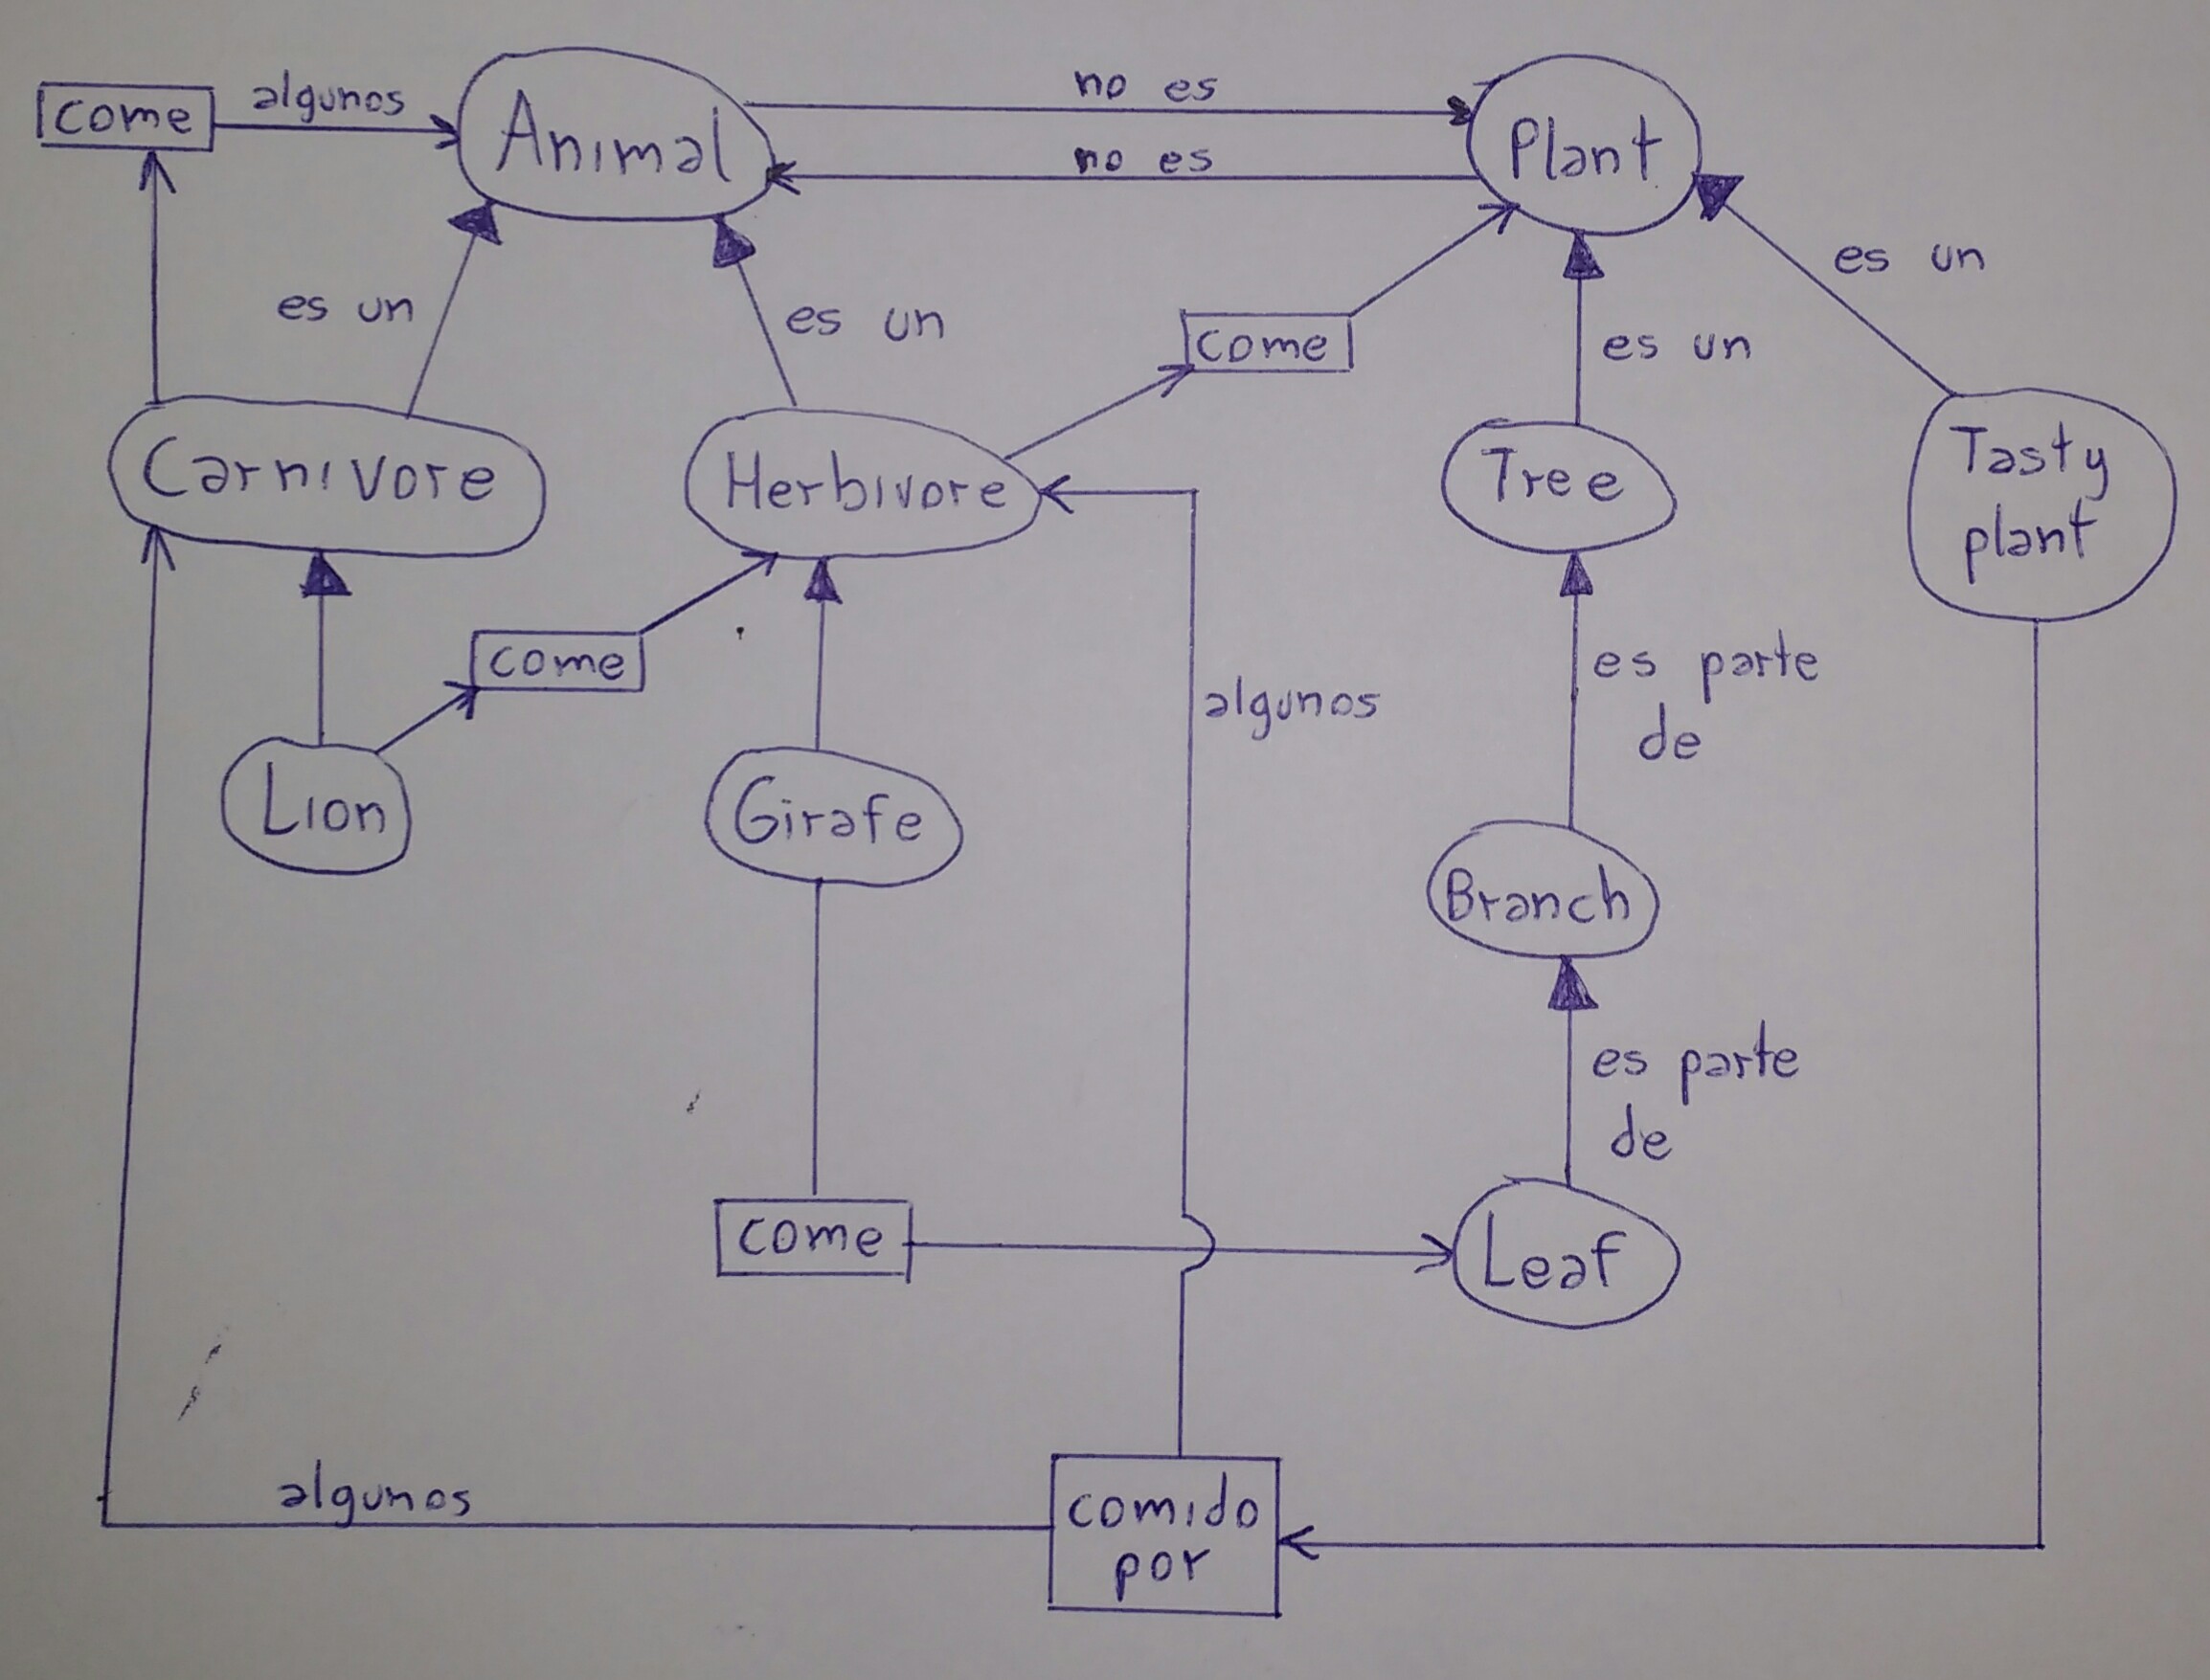 come
algunos
Animal
no es
no es
Plant
es un
es un
come
es un
es un
Carnivore
Herbivore
Tree
Tasty
plant
come
algunos
es parte
de
Lion
Girafe
Branch
es parte
de
come
Leaf
algunos
comido
por